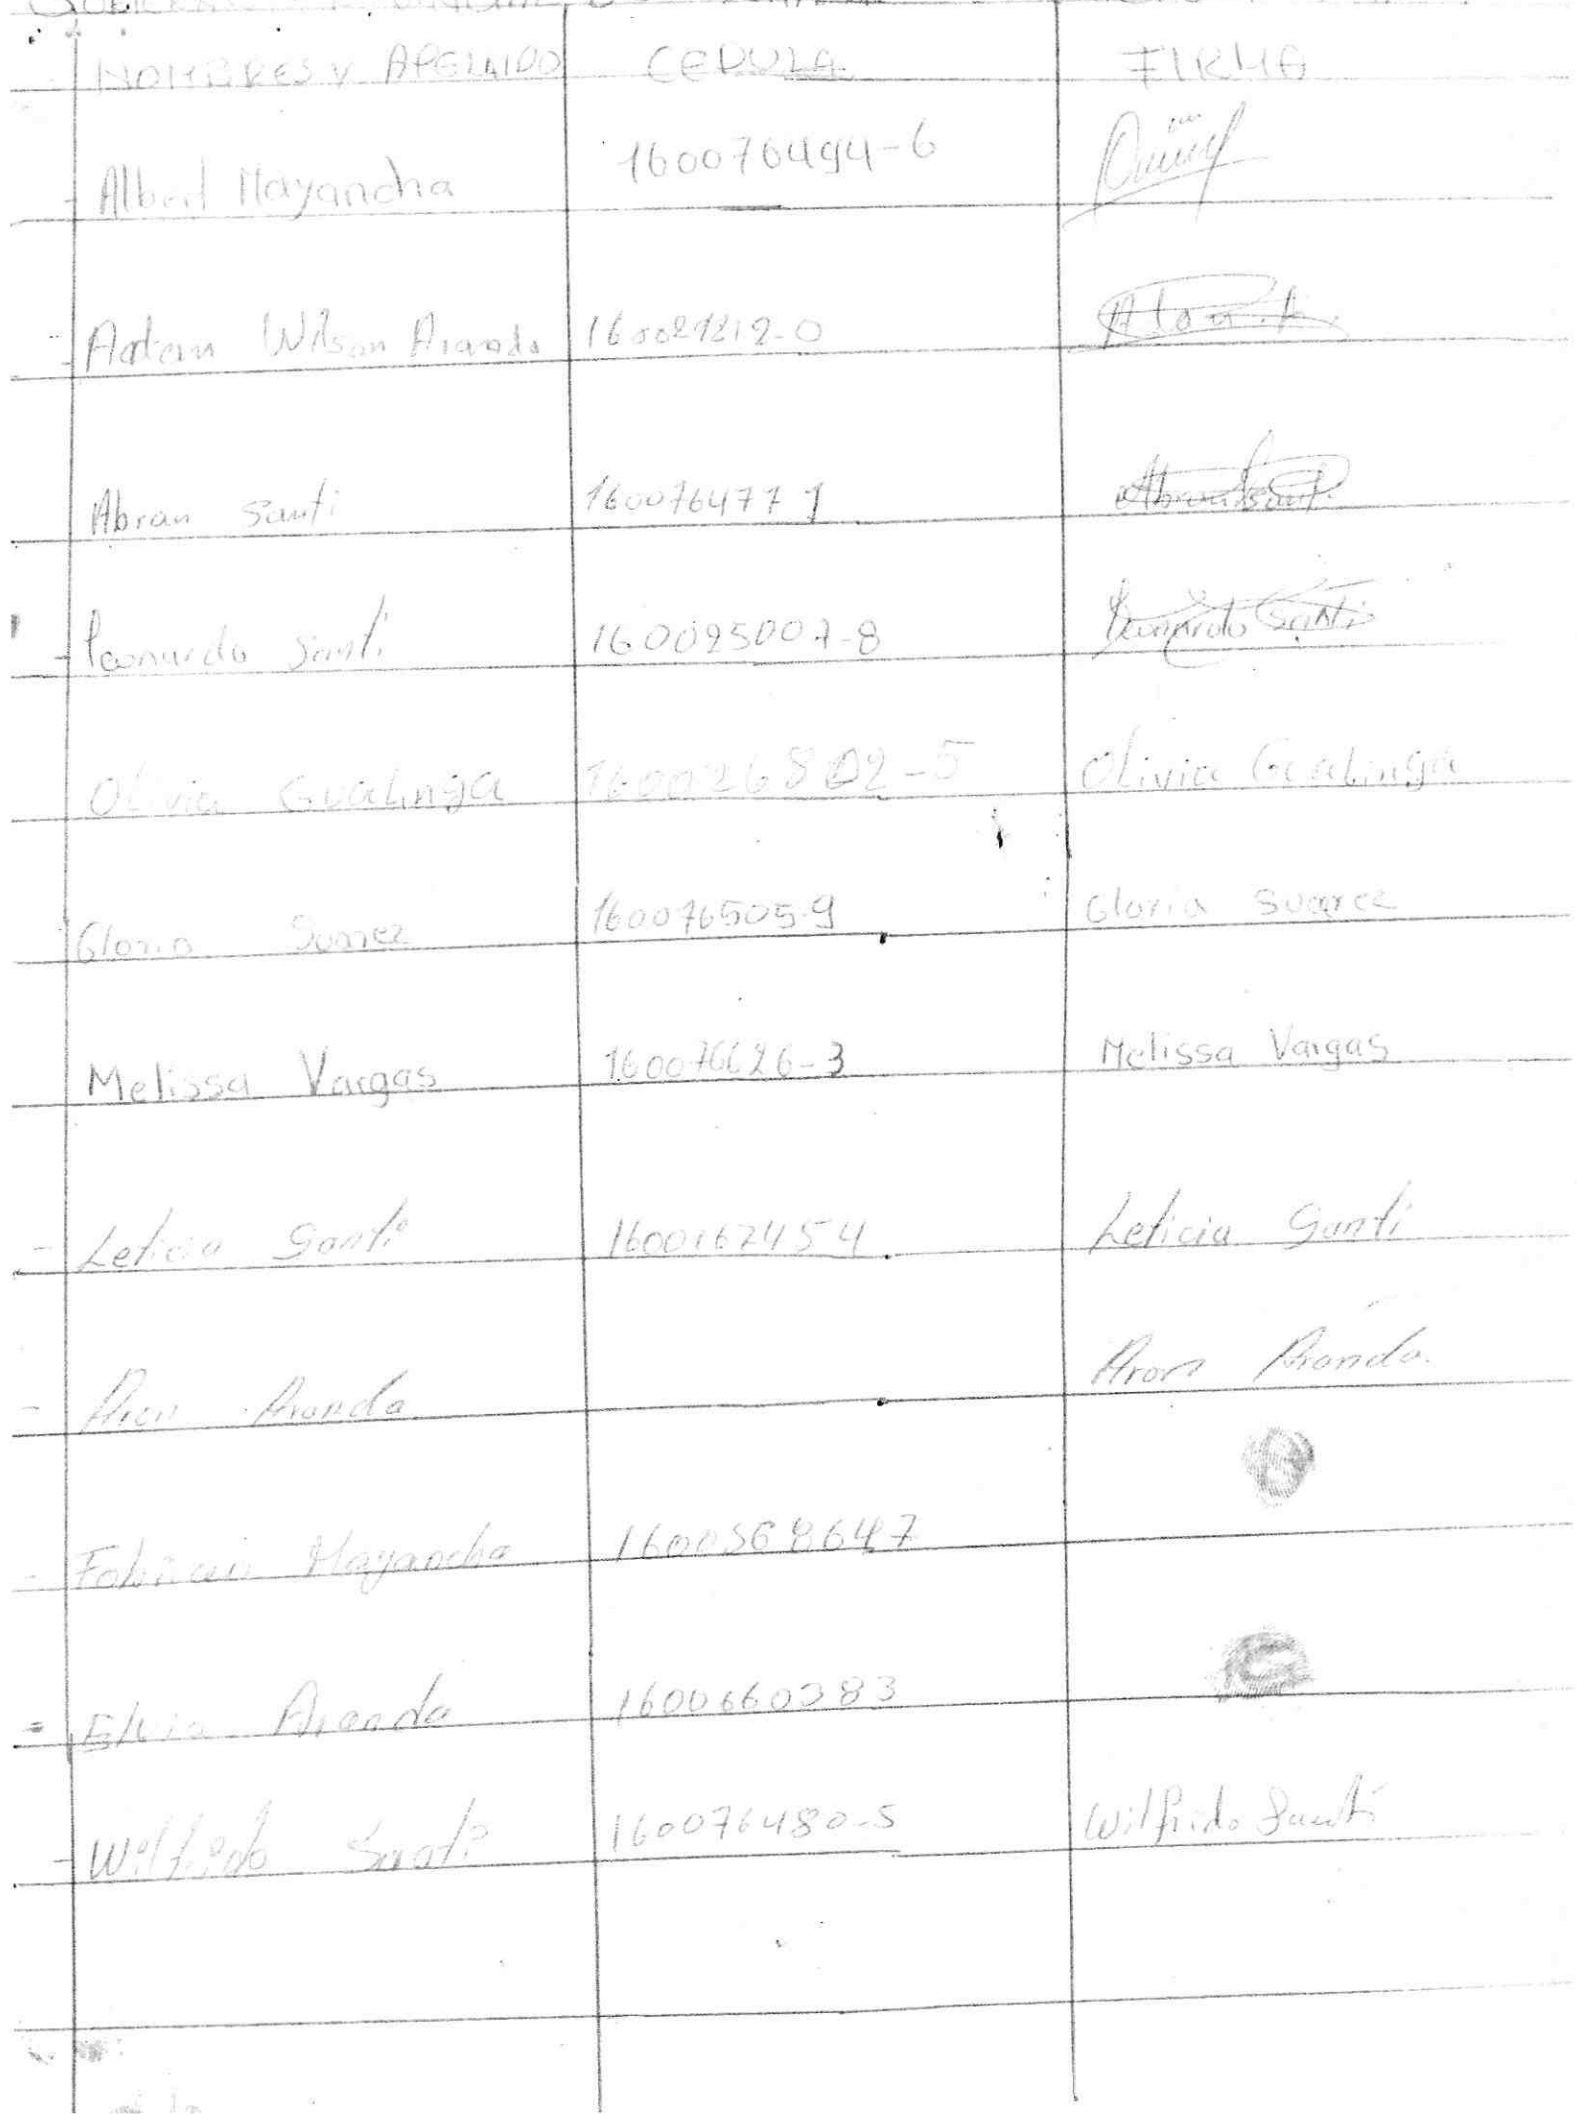 NOMBRES Y APELLIDO CEDULA FIRMA
Albert Mayancha 160076494-6
Adam Wilson Aranda
Abran Santi 160076477 1
Leonardo Santi 160095007-8 Leonardo Santi
Olivia Gualinga 160026802-5 Olivia Gualinga
Gloria Suarez 160076505-9 Gloria Suarez
Melissa Vargas 160076626-3 Melissa Vargas
Leticia Santi 1600167454 Leticia Santi
Aron Aranda Aron Aranda.
Mayancha 1600568647
Elvia Aranda 1600660383
Wilfrido Santi 160076480-5 Wilfrido Santi